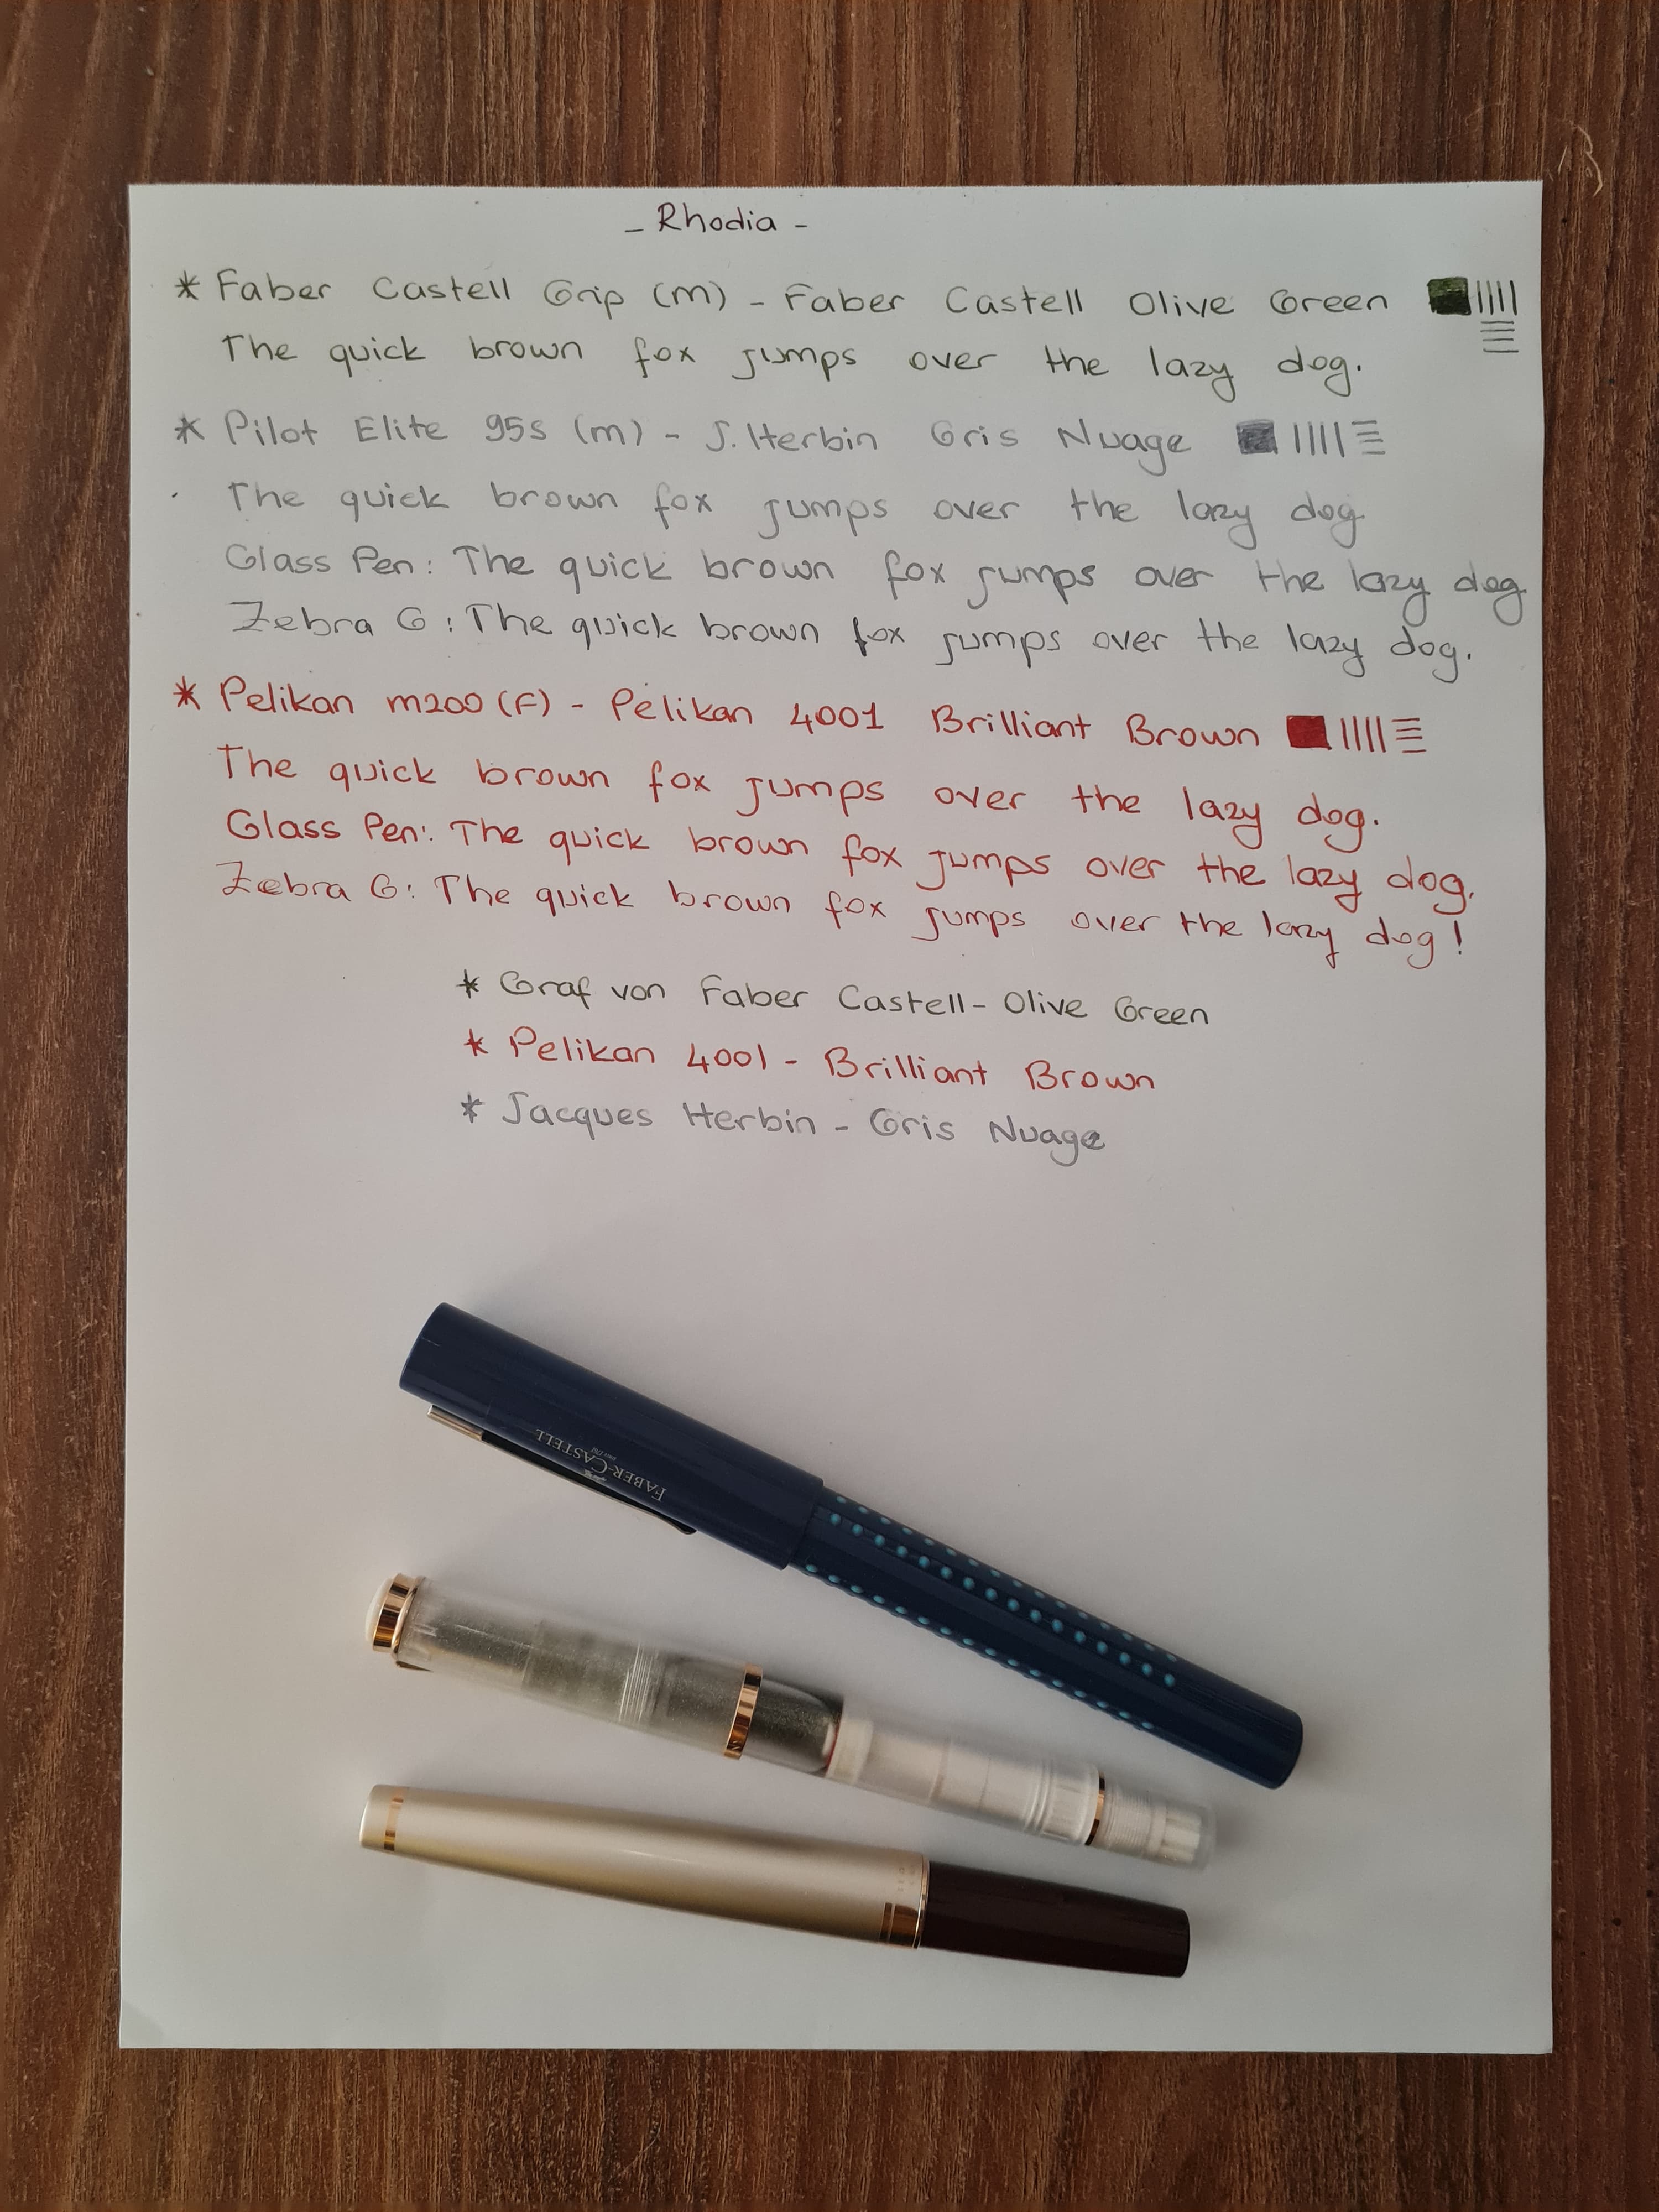 - Rhodia -
* Faber Castell Grip (M) - Faber Castell Olive Green
The quick brown fox jumps over the lazy dog.
* Pilot Elite 95s (m) - J. Herbin Gris Nuage
The quick brown fox jumps over the lazy dog
Glass Pen: The quick brown fox jumps over the lazy dog
Zebra G: The quick brown fox jumps over the lazy dog.
* Pelikan m200 (F) - Pelikan 4001 Brilliant Brown
The quick brown fox jumps over the lazy dog.
Glass Pen: The quick brown fox jumps over the lazy dog.
Zebra G: The quick brown fox jumps over the lazy dog!
* Graf von Faber Castell - Olive Green
* Pelikan 4001 - Brilliant Brown
* Jacques Herbin - Gris Nuage
FABER-CASTELL